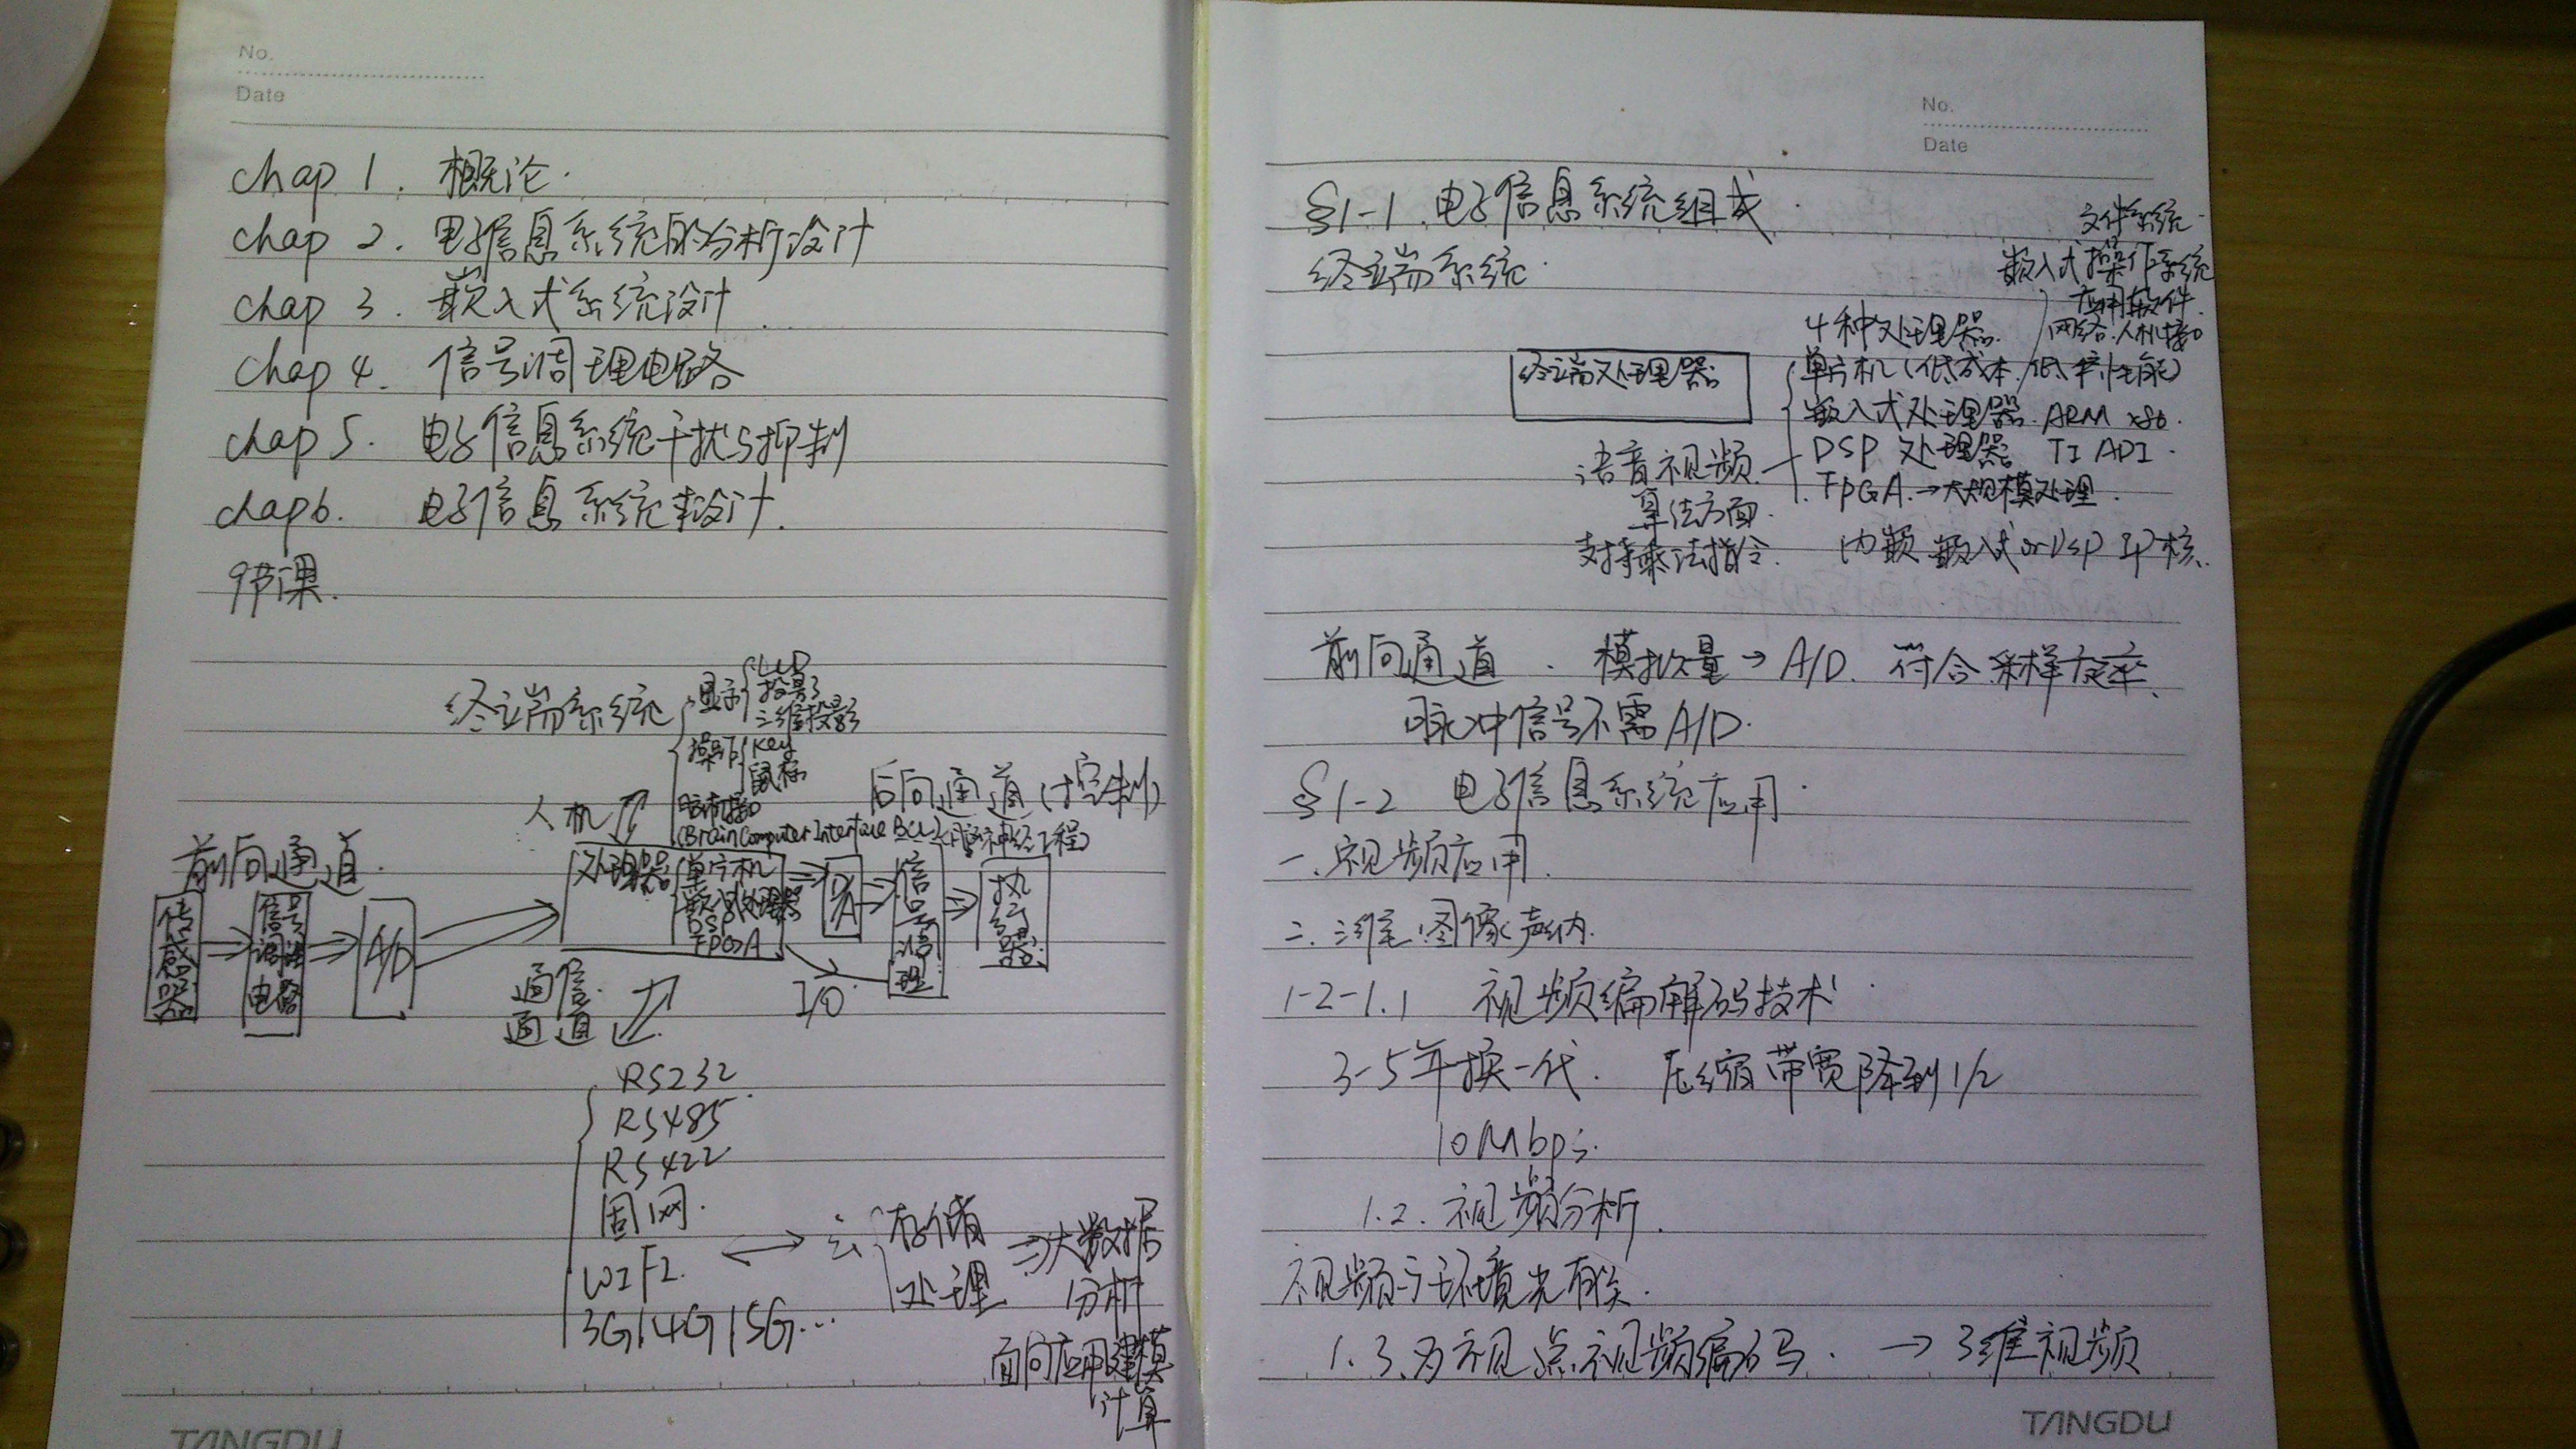 No.
Date
chap 1. 概论.
chap 2. 电子信息系统的分析设计
chap 3. 嵌入式系统设计
chap 4. 信号调理电路
chap 5. 电子信息系统干扰与抑制
chap 6. 电子信息系统设计.
9节课.
终端系统
显示
LCD
投影
三维投影
操作
key
鼠标
脑机接口
(Brain Computer Interface BCI)
神经工程)
人机
后向通道(控制)
前向通道.
传感器
信号调理电路
A/D
处理器
单片机
嵌入式处理器
DSP
FPGA
D/A
信号调理
执行器
I/O
通信通道
RS232
RS485
RS422
固网.
WIFI
3G/4G/5G...
云
存储
处理
⇒大数据
分析
面向应用建模
计算
TANGDU
No.
Date
§1-1 电子信息系统组成.
终端系统.
文件系统.
嵌入式操作系统
应用软件.
网络.人机接口
4种处理器.
终端处理器
单片机(低成本.低性能)
嵌入式处理器. ARM x86.
DSP 处理器 TI ADI.
FPGA.→大规模处理.
语音视频
算法方面.
支持乘法指令.
内嵌 嵌入式 or DSP IP核.
前向通道. 模拟量→A/D. 符合采样定率.
脉冲信号不需A/D.
§1-2 电子信息系统应用.
一.视频应用.
二.三维图像声纳.
1-2-1.1 视频编解码技术.
3-5年换一代. 压缩带宽降到1/2
10Mbps.
1.2. 视频分析.
视频与环境光有关.
1.3. 多视点视频编码. → 3维视频
TANGDU